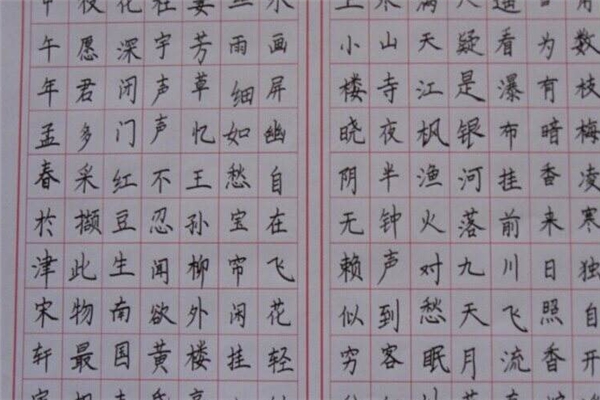 数枝梅凌寒独自开
为有暗香来日照香
遥看瀑布挂前川飞流
疑是银河落九天月
满天江枫渔火对愁眠
山寺夜半钟声到客
上小楼晓阴无赖似穷
水画屏幽自在飞花轻
丝雨细如愁宝帘闲挂
萋芳草忆王孙柳外楼
杜宇声声不忍闻欲黄
花深闭门红豆生南国
枝愿君多采撷此物最
甲午年孟春於津宋轩